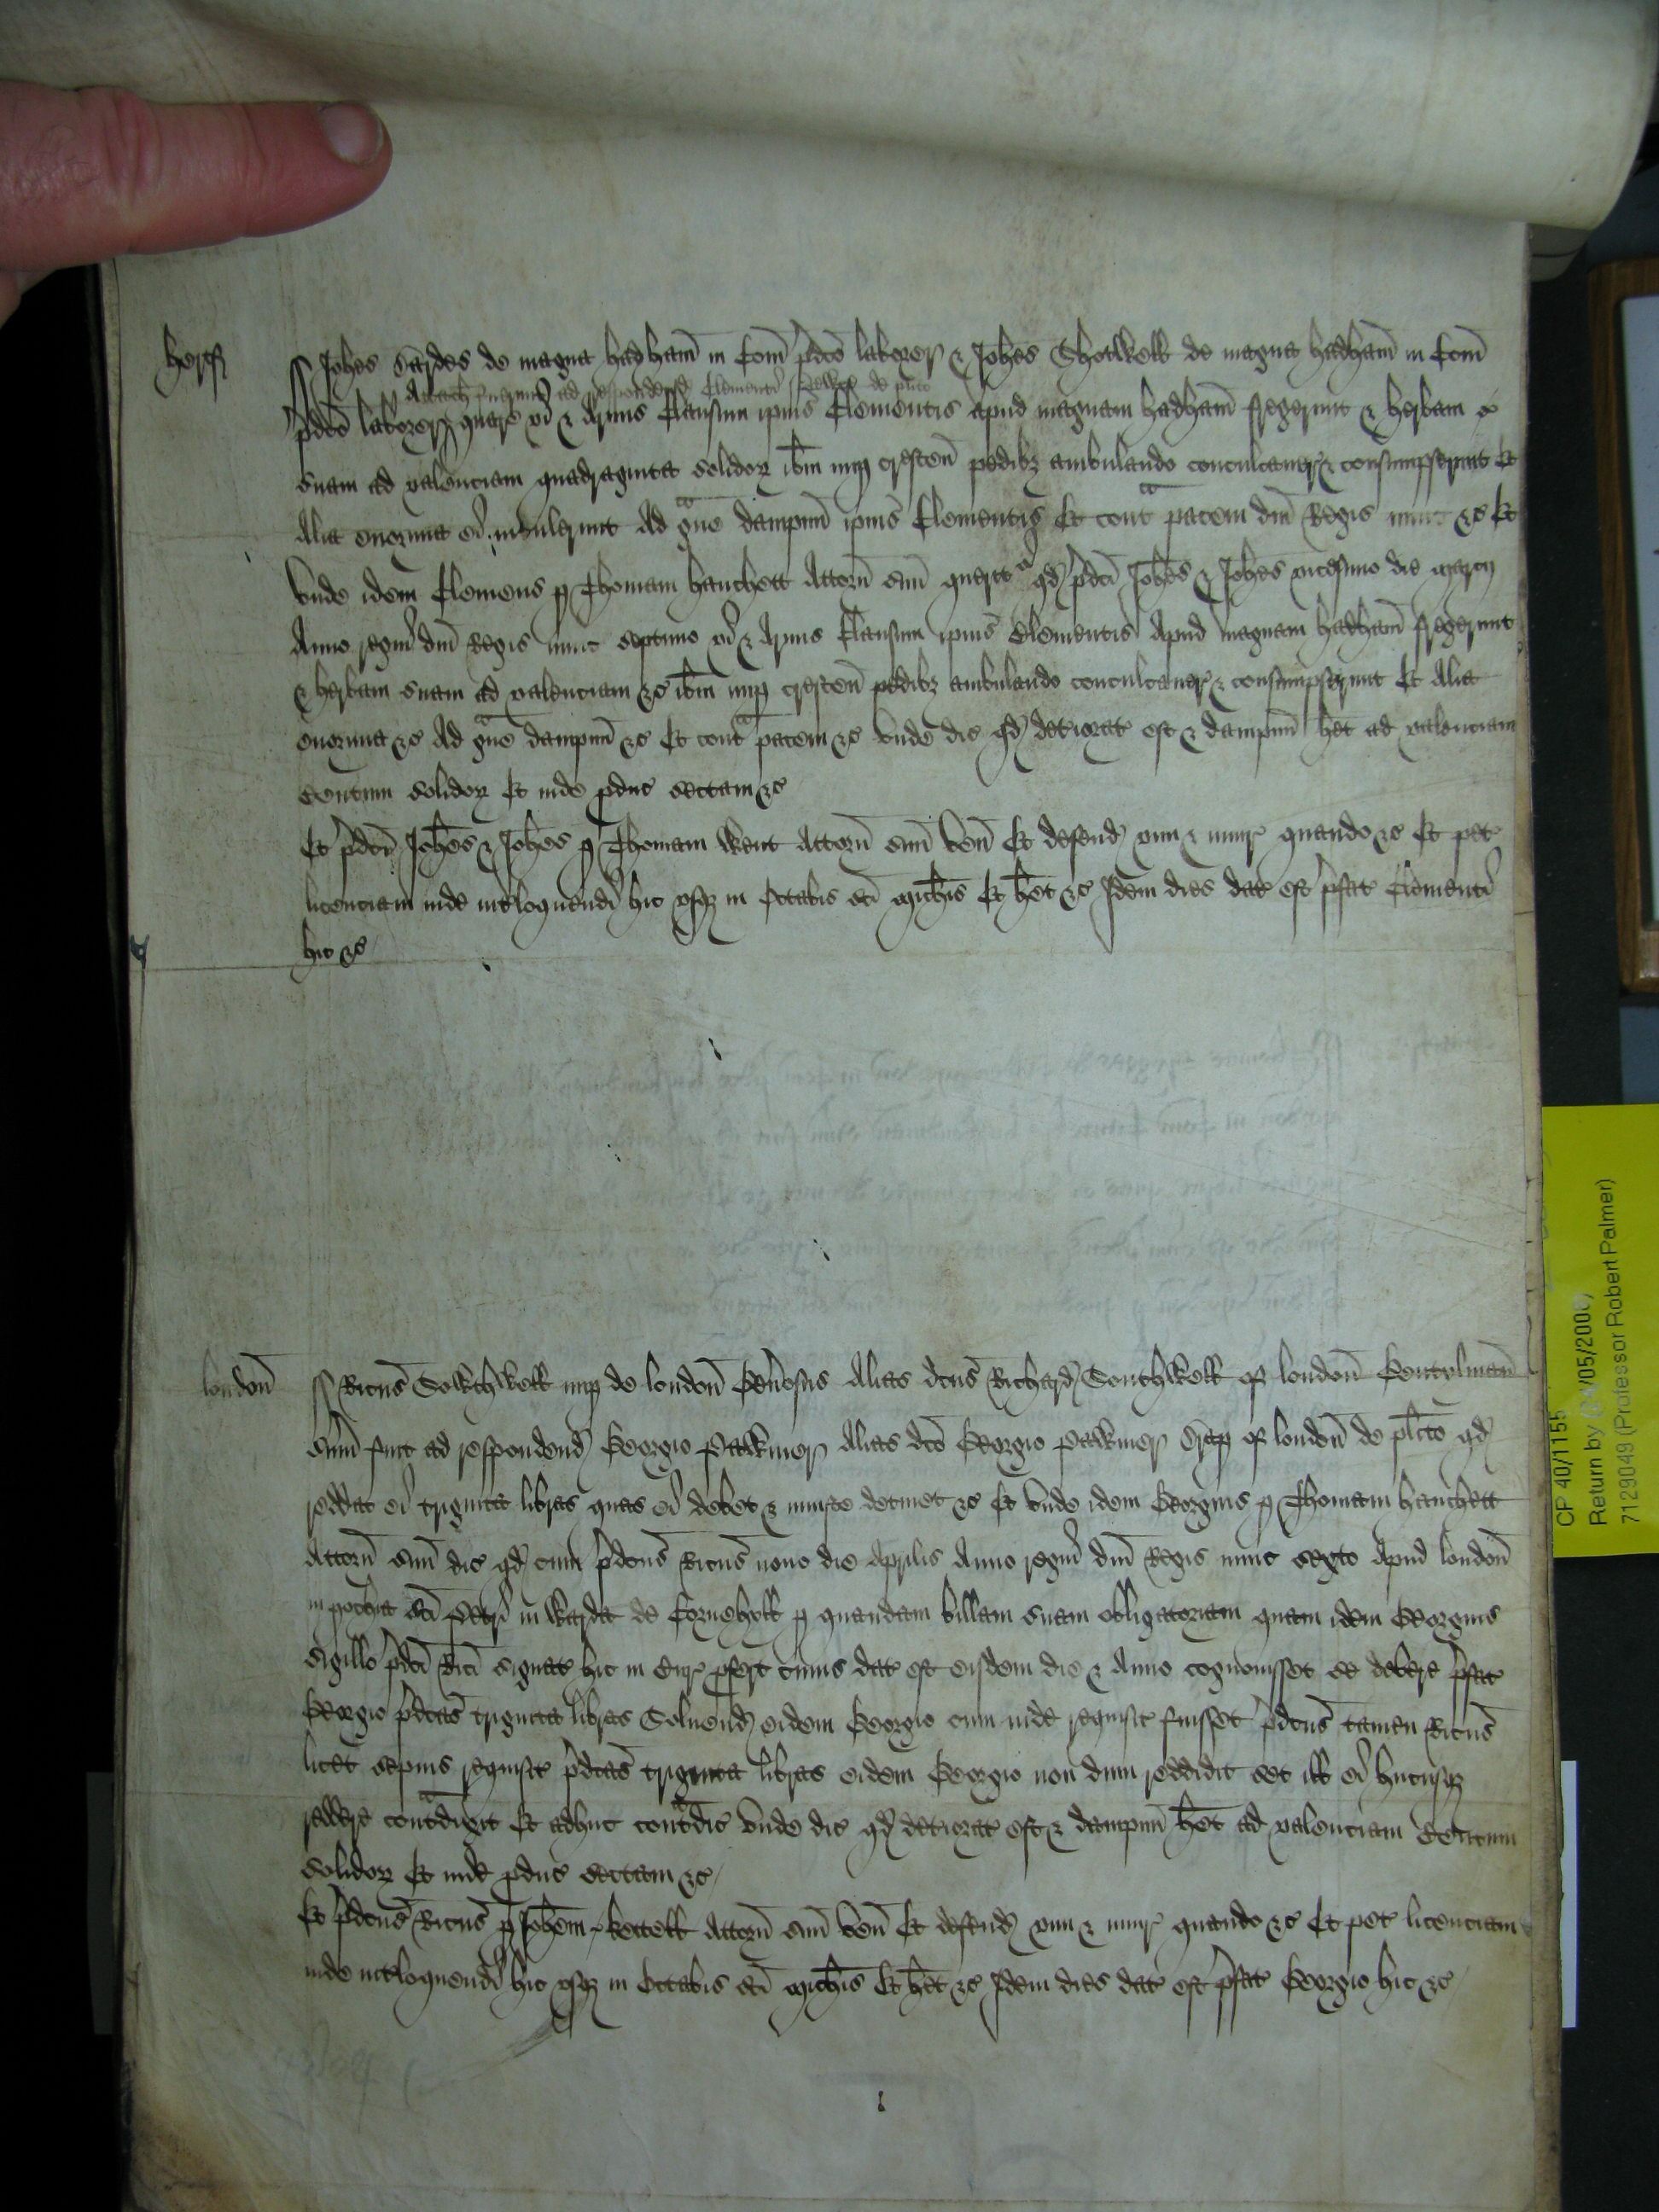 Hertf
Joh̄es Sardes de magna hadham̄ in Com̄ p̄dc̄o laborer & Joh̄es Shotwell de magna hadham̄ in Com̄
attach fuerunt ad respondend Clementi de pl̄ito
p̄dc̄o laborer quare vi & armis Clausum ip̄ius Clementis apud magnam hadham̄ fregerunt & herbam
suam ad valenciam quadraginta solidoꝝ ib̄m nup crescen̄ pedibꝫ ambulando conculcaver & consumpserunt Et
Alia enormia ei intulerunt Ad gᵃue dampnū ip̄ius Clementis Et contᵃ pacem dn̄i Regis nunc &c Et
vnde idem Clemens p Thomam hanchett Attorn̄ suū querit᷑ qd p̄dc̄i Joh̄es & Joh̄es vicesimo die marcij
Anno regni dn̄i Regis nunc septimo vi & Armis Clausum ip̄ius Clementis Apud magnam hadham̄ fregerunt
& herbam suam ad valenciam &c ib̄m nup crescen̄ pedibꝫ ambulando conculcaver & consumpserunt Et Alia
enormia &c Ad gᵃue dampnū &c Et contᵃ pacem &c vnde dic qd deteriorat᷑ est & dampnū h̄et ad valenciam
Centum solidoꝝ Et inde pduc sectam &c
Et p̄dc̄i Joh̄es & Joh̄es p Thomam Kent Attorn̄ suū ven̄ Et defend vim & iniur quando &c Et pet᷑
licenciam inde int᷑loquendi hic vsqꝫ in Octabis sc̄i Mich̄is Et h̄et &c Idem dies dat᷑ est p̄fat᷑ Clementi
hic &c
london̄
Ric̄us Sowthwell nup de london̄ Gen̄osus Alias dc̄us Richard Southwell of london̄ Gentylman̄
sum̄ fuit ad respondend Georgio Pawkiner Alias dc̄o Georgio Pawkiner of london̄ de pl̄ito qd
reddat ei triginta libras quas ei debet & iniuste detinet &c Et vnde idem Georgius p Thomam hanchett
Attorn̄ suū dic qd cum p̄dc̄us Ric̄us nono die Aprilis Anno regni dn̄i Regis nunc sexto Apud london̄
in poch̄ia sc̄i Petri in warda de Cornehyll p quandam billam suam obligatoriam quam idem Georgius
sigillo p̄dc̄i Ric̄i signat᷑ hic in Cur pfert cuius dat᷑ est eisdem die & Anno cognouisset se debere p̄fat᷑
Georgio p̄dc̄as triginta libras Soluend eidem Georgio cum inde requisit᷑ fuisset p̄dc̄us tamen Ric̄us
licet sepius requisit᷑ p̄dc̄as triginta libras eidem Georgio non dum reddidit set ill ei hucusqꝫ
reddere contᵃdixit Et adhuc contᵃdic vnde dic qd deteriorat᷑ est & dampnū h̄et ad valenciam Centum
solidoꝝ Et inde pduc sectam &c
Et p̄dc̄us Ric̄us p Joh̄em Kettell Attorn̄ suū ven̄ Et defend vim & iniur quando &c Et pet᷑ licenciam
inde int᷑loquendi hic vsqꝫ in Octabis sc̄i Mich̄is Et h̄et &c Idem dies dat᷑ est p̄fat᷑ Georgio hic &c
CP 40/1155
Return by (24/05/2006)
7129049 (Professor Robert Palmer)